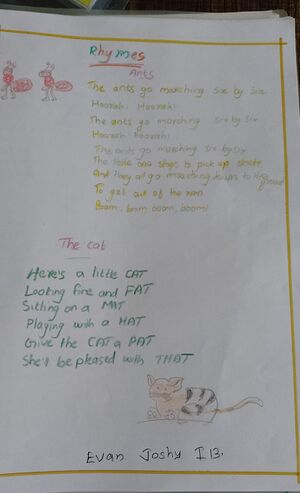 Rhymes
Ants
The ants go marching six by six
Hoorah! Hoorah!
The ants go marching six by six
Hoorah hoorah!
The ants go marching six by six
The little one stops to pick up sticks
And they all go marching down to the ground
To get out of the rain
Boom, boom boom, boom!
The cat
Here's a little CAT
Looking fine and FAT
Sitting on a MAT
Playing with a HAT
Give the CAT a PAT
She'll be pleased with THAT
Evan Joshy I B.